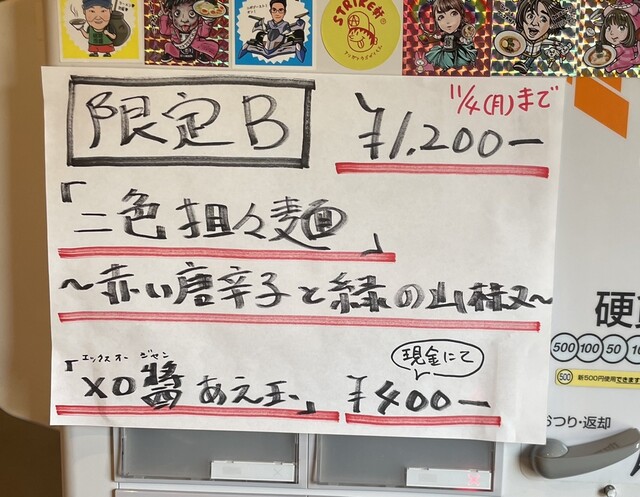 STRIKEH
11/4(月)まで
限定B ¥1,200-
「二色担々麺」
~赤い唐辛子と緑の山椒~
エックスオー ジャン
「XO醬あえ玉」 現金にて ¥400-
硬
500 100 50 10
500 新500円使用できます
おつり・返却